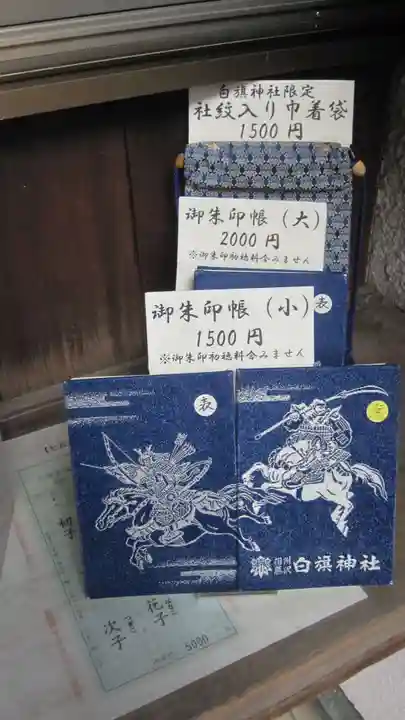 白旗神社限定
社紋入り巾着袋
1500円
御朱印帳（大）
2000円
※御朱印初穂料含みません
表
御朱印帳（小）
1500円
※御朱印初穂料含みません
表
相州
藤沢
白旗神社
次子
5000